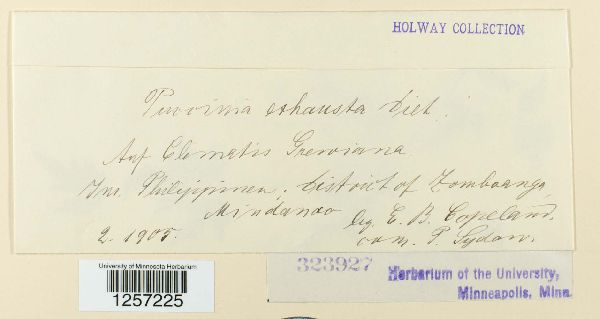 HOLWAY COLLECTION
Puccinia exhausta Diet.
Auf Clematis Grewiana
Ins. Philippinen, District of Zamboanga,
Mindanao leg. E. B. Copeland.
2. 1905. com. P. Sydow.
University of Minnesota Herbarium
1257225
323927
Herbarium of the University,
Minneapolis, Minn.